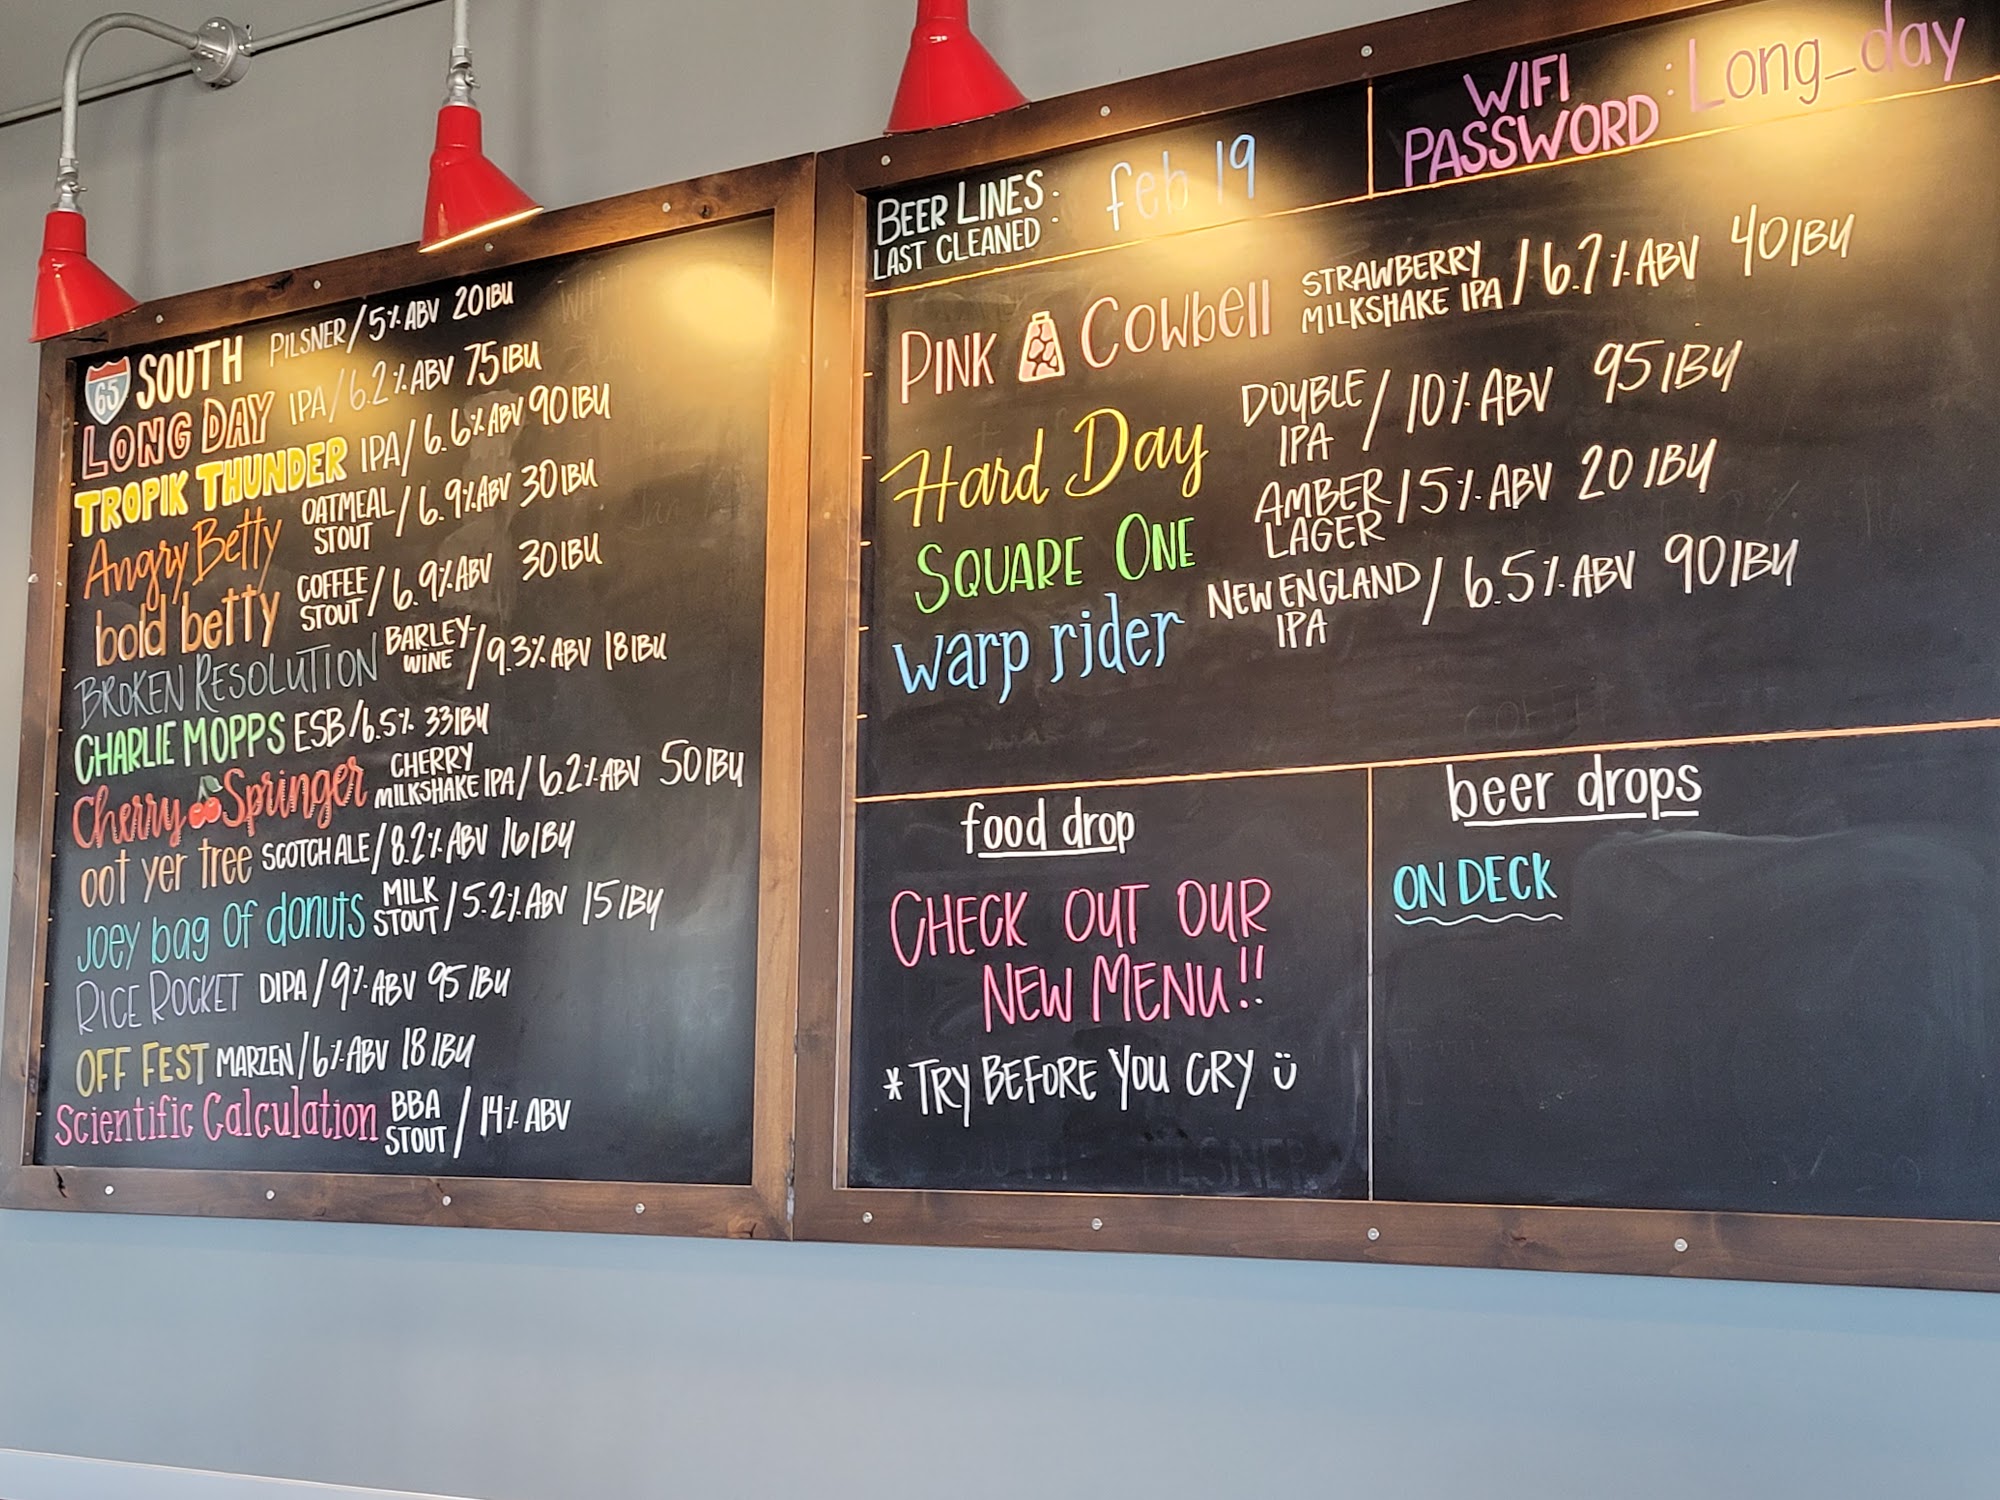 65 SOUTH PILSNER/5% ABV 20IBU
LONG DAY IPA/6.2% ABV 75IBU
TROPIK THUNDER IPA/6.6% ABV 90IBU
Angry Betty OATMEAL STOUT/6.9% ABV 30IBU
bold betty COFFEE STOUT/6.9% ABV 30IBU
BROKEN RESOLUTION BARLEY-WINE/9.3% ABV 18IBU
CHARLIE MOPPS ESB/6.5% 33IBU
Cherry Springer CHERRY MILKSHAKE IPA/6.2% ABV 50IBU
oot yer tree SCOTCH ALE/8.2% ABV 16IBU
Joey bag of donuts MILK STOUT/5.2% ABV 15IBU
RICE ROCKET DIPA/9% ABV 95IBU
OFF FEST MARZEN/6% ABV 18IBU
Scientific Calculation BBA STOUT/14% ABV
BEER LINES LAST CLEANED: feb 19
WIFI PASSWORD: Long_day
PINK COWbell STRAWBERRY MILKSHAKE IPA/6.7% ABV 40IBU
Hard Day DOUBLE IPA/10% ABV 95IBU
SQUARE ONE AMBER LAGER/5% ABV 20IBU
warp rider NEW ENGLAND IPA/6.5% ABV 90IBU
food drop
CHECK OUT OUR
NEW MENU!!
*TRY BEFORE YOU CRY Ü
beer drops
ON DECK